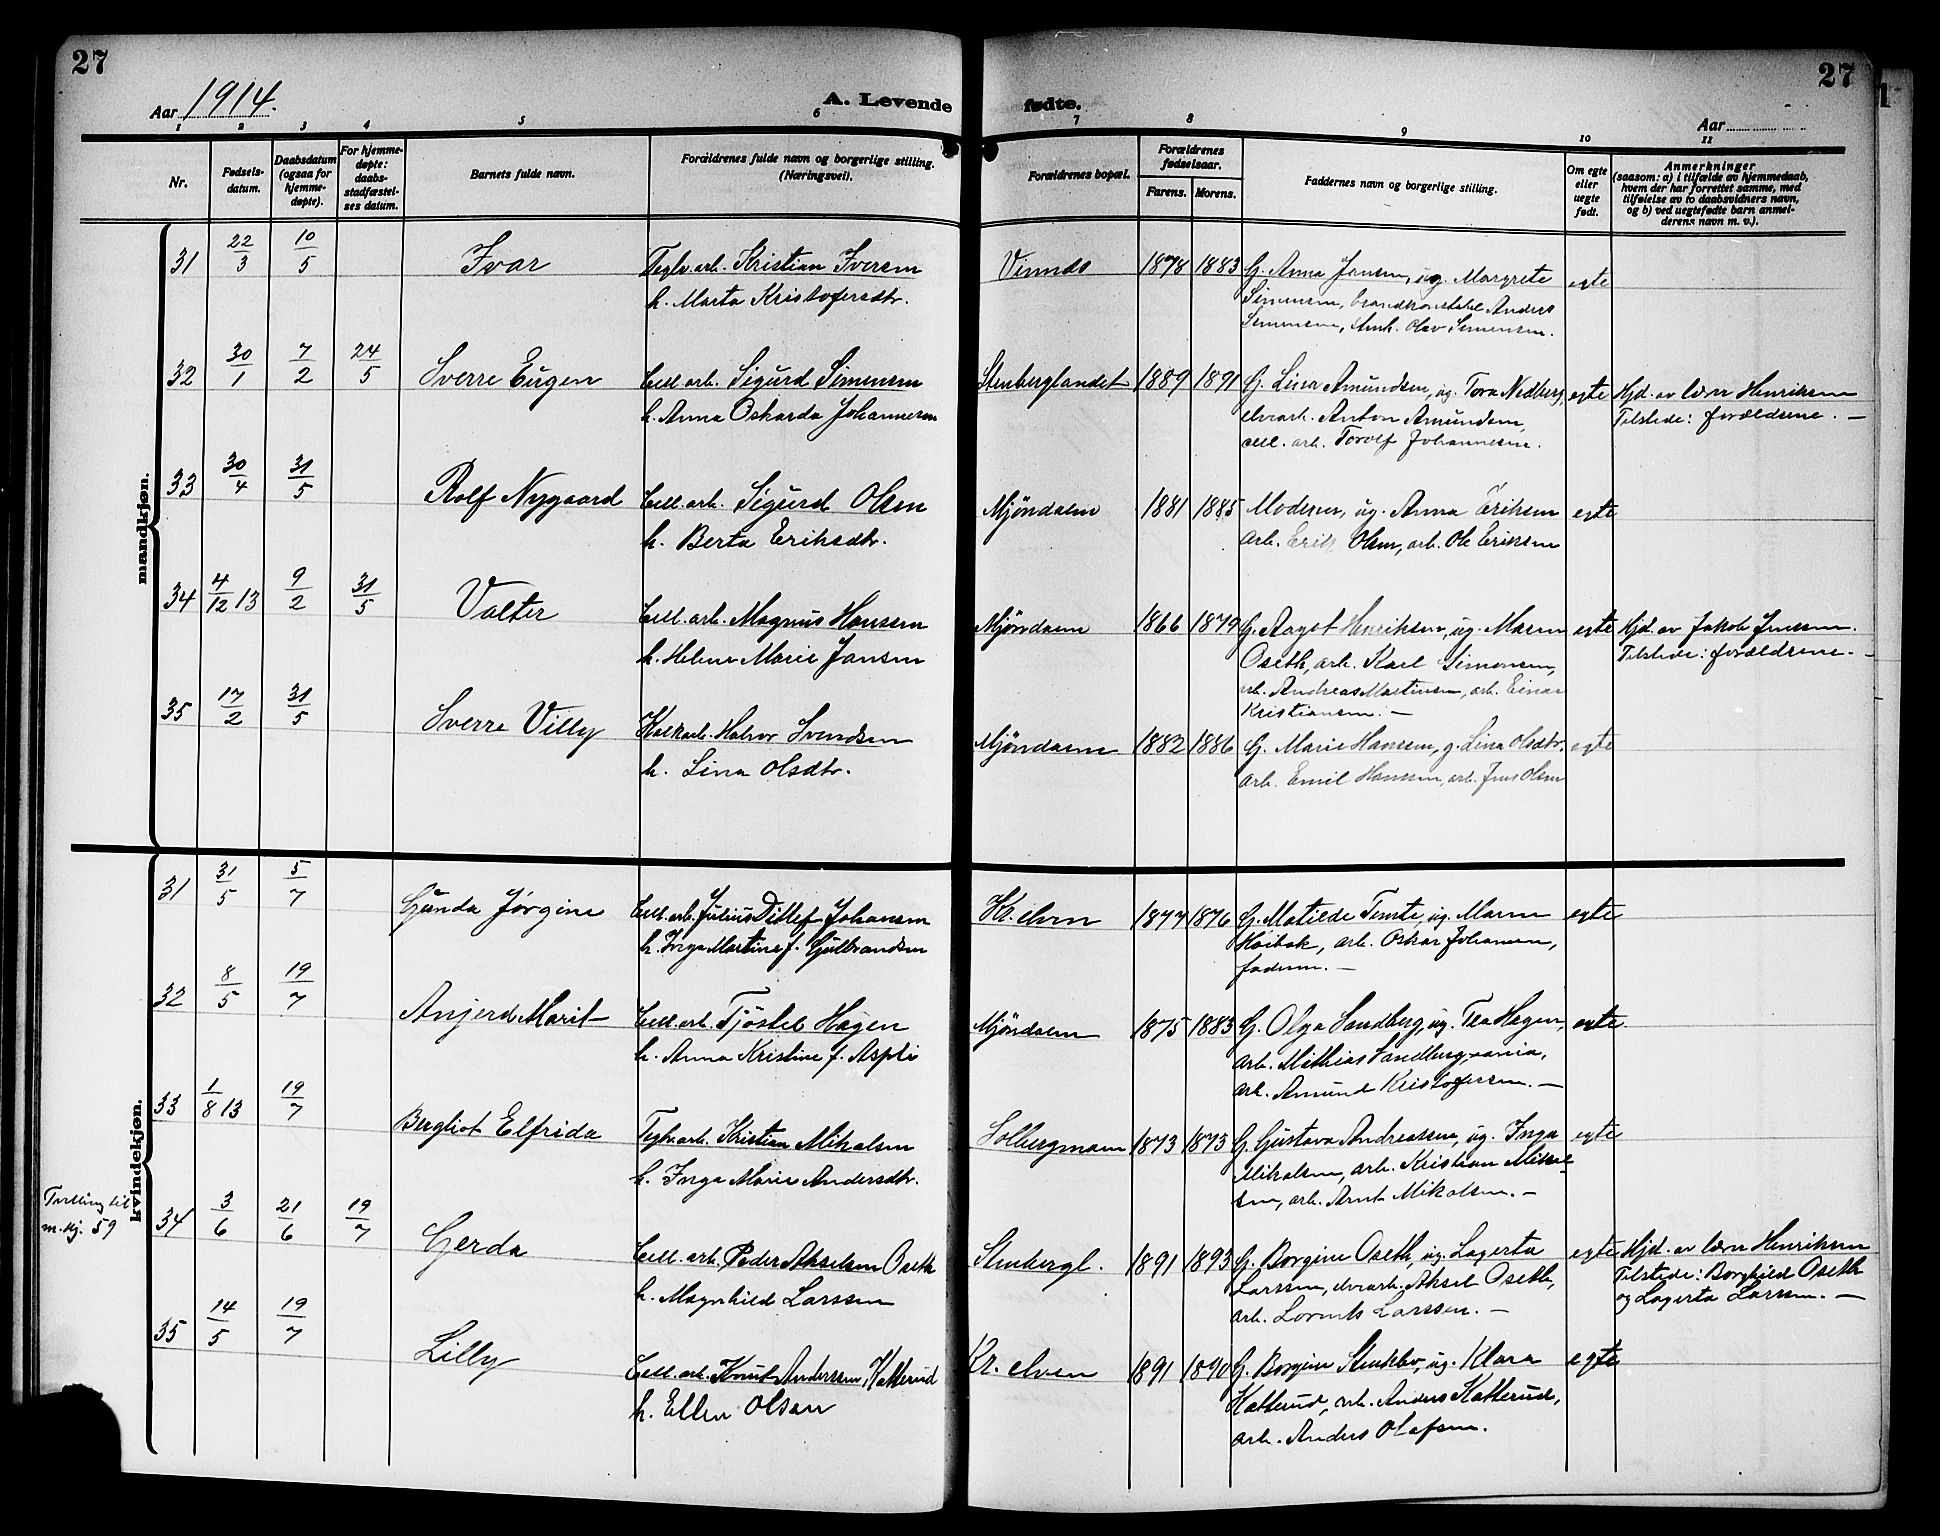 27
27
Aar 1914.
A. Levende
fødte.
Aar
1 2 3 4 5 6 7 8 9 10 11
Nr.
Fødsels-
datum.
Daabsdatum
(ogsaa for
hjemme-
døpte).
For hjemme-
døpte:
daabs-
stadfæstel-
ses datum.
Barnets fulde navn.
Forældrenes fulde navn og borgerlige stilling.
(Næringsvei).
Forældrenes bopæl.
Forældrenes
fødselsaar.
Farens. Morens.
Faddernes navn og borgerlige stilling.
Om egte
eller
uegte
født.
Anmerkninger
(saasom: a) i tilfælde av hjemmedaab,
hvem der har forrettet samme, med
tilføielse av to daabsvidners navn,
og b) ved uegtefødte barn anmel-
derens navn m. v.).
mandkjøn.
31 22/3 10/5 Ivar Teglv.arb. Kristian Iversen Vinnds 1878 1883 G. Anna Jansen, ug. Margrete egte
h. Marta Kristofersdtr. Simensen, brandkonstabel Anders
Simensen, Olav Simensen.
32 30/1 7/2 24/5 Sverre Eugen Cell. arb. Sigurd Simensen Stenberglandet 1889 1891 G. Lina Amundsen, ug. Tora Nedberg, egte Hjd. av lærer Henriksen
h. Anna Oskarda Johannesen elvearb. Anton Amundsen, Tilstede: forældrene. —
cell. arb. Torolf Johannesen.
33 30/4 31/5 Rolf Nygaard Cell. arb. Sigurd Olsen Mjøndalen 1881 1885 Moderen, ug. Anna Eriksen egte
h. Berta Eriksdtr. arb. Erik Olsen, arb. Ole Eriksen
34 4/12 13 9/2 31/5 Valter Cell. arb. Magnus Hanssen Mjøndalen 1866 1879 G. Aagot Henriksen, ug. Maren egte Hjd. av Jakob Jenssen.
h. Helene Marie Jansen Oseth, arb. Karl Simensen, Tilstede: forældrene. —
arb. Andreas Martinsen, arb. Einar
Kristiansen. —
35 17/2 31/5 Sverre Villy Kalkarb. Halvor Svendsen Mjøndalen 1882 1886 G. Marie Hanssen, g. Lina Olsdtr. egte
h. Lina Olsdtr. arb. Emil Hanssen, arb. Jens Olsen
kvindekjøn.
31 31/5 5/7 Gunda Jørgine Cell. arb. Julius Ditlef Johansen Kr. elven 1877 1876 G. Matilde Temte, ug. Maren egte
h. Inga Martine f. Gulbrandsen Høibak, arb. Oskar Johansen,
faderen. —
32 8/5 19/7 Anjerd Marit Cell. arb. Tjøstel Hagen Mjøndalen 1875 1883 G. Olga Sandberg, ug. Tea Hagen, egte.
h. Anna Kristine f. Aspli arb. Mathias Sandberg,
arb. Amund Kristofersen. —
33 1/8 13 19/7 Bergliot Elfrida Teglv.arb. Kristian Mikalsen Solbergmoen 1873 1873 G. Gustava Andreassen, ug. Inga egte
h. Inga Marie Andersdtr. Mikalsen, arb. Kristian Mikal-
sen, arb. Arnt Mikalsen. —
Tvilling til
m.kj. 59
34 3/6 21/6 19/7 Gerda Cell. arb. Peder Akselsen Oseth Stenbergl. 1891 1893 G. Borgine Oseth, ug. Lagerta egte Hjd. av lærer Henriksen
h. Magnhild Larssen Larssen, elvearb. Aksel Oseth, Tilstede: Borghild Oseth
arb. Lorents Larssen. — og Lagerta Larssen. —
35 14/5 19/7 Lilly Cell. arb. Knut Anderssen Katterud Kr. elven 1891 1890 G. Borgine Stenklev, ug. Klara egte
h. Ellen Olsen Katterud, arb. Anders Katterud,
arb. Anders Olafsen.